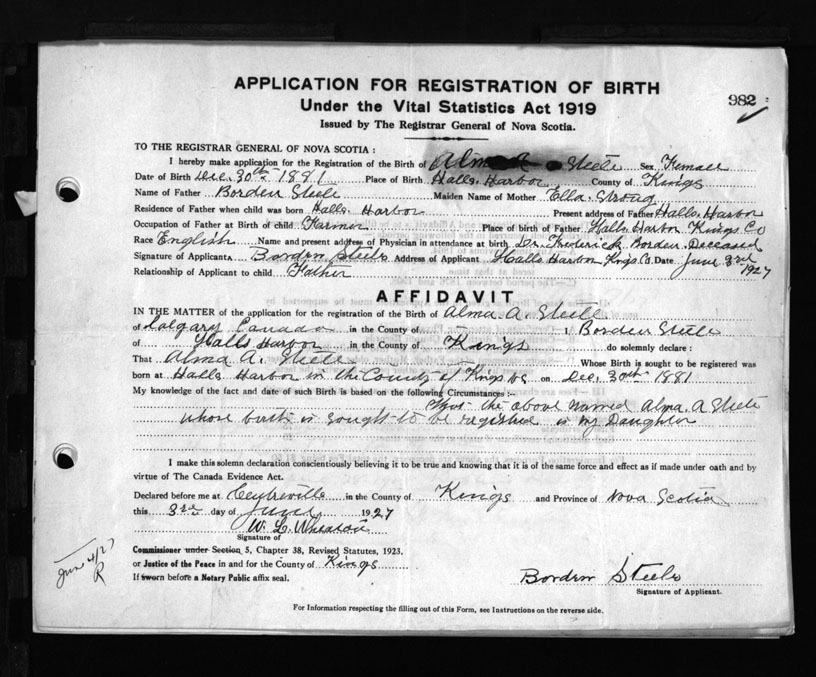 APPLICATION FOR REGISTRATION OF BIRTH
982
Under the Vital Statistics Act 1919
Issued by The Registrar General of Nova Scotia.
TO THE REGISTRAR GENERAL OF NOVA SCOTIA:
I hereby make application for the Registration of the Birth of Alma A Steele Sex Female
Date of Birth Dec. 30th 1881 Place of Birth Halls Harbor County of Kings
Name of Father Borden Steele Maiden Name of Mother Ella Stroag
Residence of Father when child was born Halls Harbor Present address of Father Halls Harbor
Occupation of Father at Birth of child Farmer Place of Birth of Father Halls Harbor Kings Co
Race English Name and present address of Physician in attendance at birth Dr. Frederick Borden. Deceased
Signature of Applicant Borden Steele Address of Applicant Halls Harbor Kings Co. Date June 3rd 1927
Relationship of Applicant to child Father
AFFIDAVIT
IN THE MATTER of the application for the registration of the Birth of Alma. A. Steele
of Calgary Canada in the County of — I, Borden Steele
of Halls Harbor in the County of Kings do solemnly declare:
That Alma A. Steele Whose Birth is sought to be registered was
born at Halls Harbor in the County of Kings Co on Dec. 30th 1881
My knowledge of the fact and date of such Birth is based on the following Circumstances:-
That the above named Alma. A Steele
whose birth is sought to be registered is my Daughter
I make this solemn declaration conscientiously believing it to be true and knowing that it is of the same force and effect as if made under oath and by
virtue of The Canada Evidence Act.
Declared before me at Centreville in the County of Kings and Province of Nova Scotia
this 3rd day of June 1927
W. L. Wheaton
Signature of
Commissioner under Section 5, Chapter 38, Revised Statutes, 1923.
or Justice of the Peace in and for the County of Kings
If sworn before a Notary Public affix seal.
June 4/27
R
Borden Steele
Signature of Applicant.
For Information respecting the filling out of this Form, see Instructions on the reverse side.